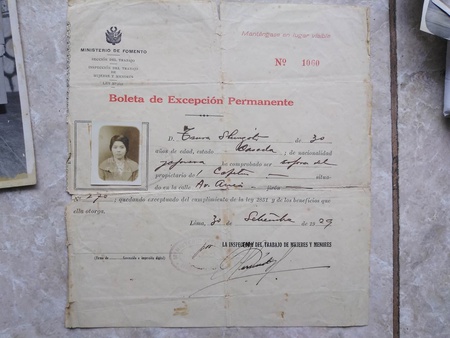 Manténgase en lugar visible
MINISTERIO DE FOMENTO
SECCIÓN DEL TRABAJO
INSPECCIÓN DEL TRABAJO
DE
MUJERES Y MENORES
Nº 1060
Boleta de Excepción Permanente
D. de 30
años de edad, estado casada; de nacionalidad
japonesa ha comprobado ser esposa del
propietario de 1 situa-
do en la calle Av. lista
Nº 270; quedando exceptuado del cumplimiento de la ley 2851 y de los beneficios que
ella otorga.
Lima, 30 Setiembre 1929
por LA INSPECCIÓN DEL TRABAJO DE MUJERES Y MENORES